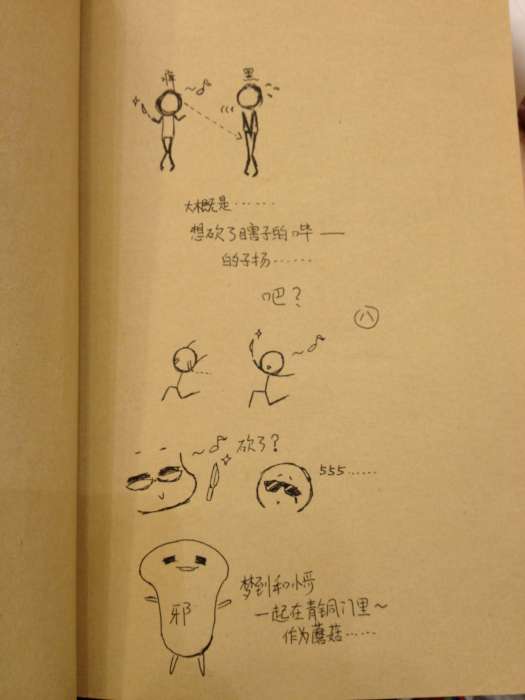 黑
大概是……
想砍了瞎子的哔——
的子扬……
吧？
八
砍了？
555……
邪
梦到和小哥
一起在青铜门里～
作为蘑菇……